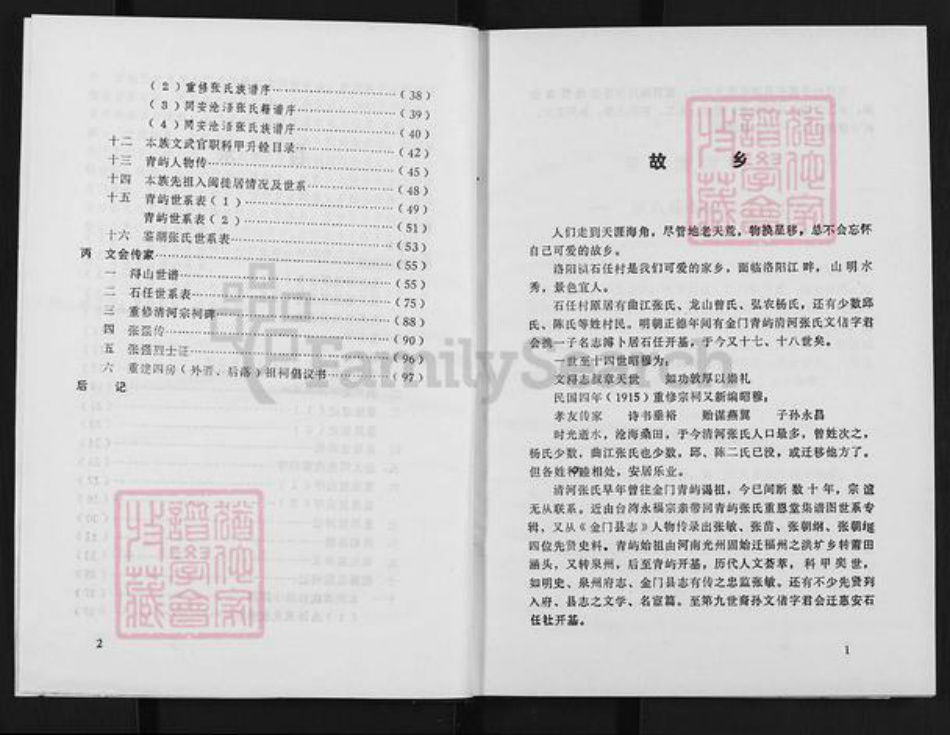 （２）重修张氏族谱序……（38）
（３）同安沧浯张氏籍谱序……（39）
（４）同安沧浯张氏族谱序……（40）
十二　本族文武官职科甲升铨目录……（42）
十三　青屿人物传……（45）
十四　本族先祖入闽徙居情况及世系……（48）
十五　青屿世系表（１）……（49）
青屿世系表（２）……（51）
十六　鉴湖张氏世系表……（53）
丙　文会传家……（55）
一　浔山世谱……（55）
二　石任世系表……（75）
三　重修清河宗祠碑……（88）
四　张强传……（90）
五　张强烈士证……（96）
六　重建四房（外厝、后落）祖祠倡议书……（97）
后　记
2
故　乡
人们走到天涯海角，尽管地老天荒，物换星移，总不会忘怀
自己可爱的故乡。
洛阳镇石任村是我们可爱的家乡，面临洛阳江畔，山明水
秀，景色宜人。
石任村原居有曲江张氏、龙山曾氏、弘农杨氏，还有少数邱
氏、陈氏等姓村民。明朝正德年间有金门青屿清河张氏文偖字君
会携一子名志溥卜居石任开基，于今又十七、十八世矣。
一世至十四世昭穆为：
文得志叔章天世　如功敦厚以崇礼
民国四年（1915）重修宗祠又新编昭穆：
孝友传家　诗书垂裕　贻谋燕翼　子孙永昌
时光逝水，沧海桑田，于今清河张氏人口最多，曾姓次之，
杨氏少数，曲江张氏也少数，邱、陈二氏已没，或迁移他方了。
但各姓种睦相处，安居乐业。
清河张氏早年曾往金门青屿谒祖，今已间断数十年，宗谊
无从联系。近由台湾永福宗亲带回青屿张氏重恩堂集谱图世系专
辑，又从《金门县志》人物传录出张敏、张苗、张朝纲、张朝綖
四位先贤史料。青屿始祖由河南光州固始迁福州之洪圹乡转莆田
涵头，又转泉州，后至青屿开基，历代人文荟萃，科甲奕世，
如明史、泉州府志、金门县志有传之忠监张敏。还有不少先贤列
入府、县志之文学、名宦篇。至第九世裔孙文偖字君会迁惠安石
任社开基。
1
猶他家
譜學會
收藏
猶他家
譜學會
收藏
FamilySearch